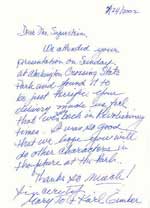 9/24/2002
Dear Mr.
We attended your
presentation on Sunday
at Washington Crossing State
Park and found it to
be just terrific. your
delivery made us feel
that we were back in Revolutionary
times. It was so good
that we hope you will
do other characters in
the future at the Park.
Thanks so much!
Sincerely
Mary Lo & Karl